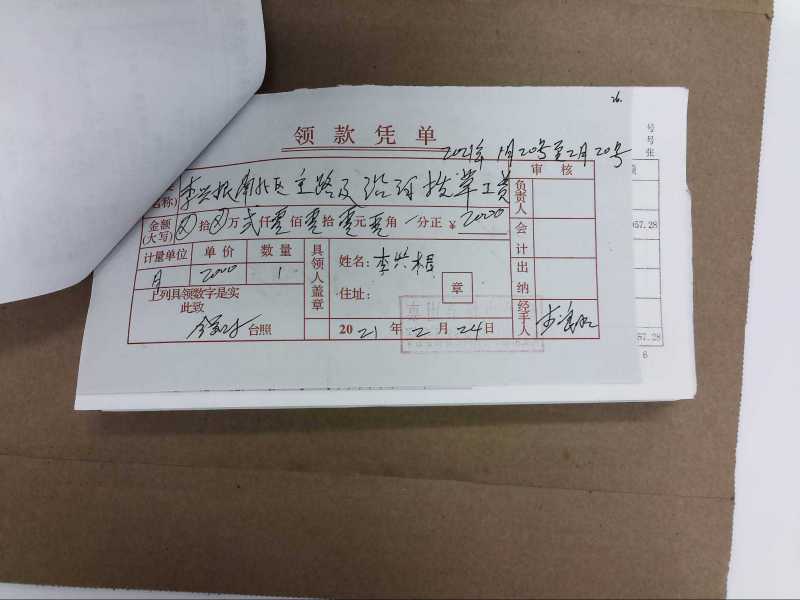 26.
领款凭单
2021年1月20号至2月20号
名称) 李兴根南北区主路及沿河拔草工资
金额(大写) ⊗拾⊗万贰仟零佰零拾零元零角一分正 ¥2000
计量单位 单价 数量
月 2000 1
上列具领数字是实
此致
台照
具领人盖章
姓名:李兴根
住址: 章
2021年2月24日
审核
负责人
会计
出纳
经手人
号
号
张
额
057.28
057.28
6